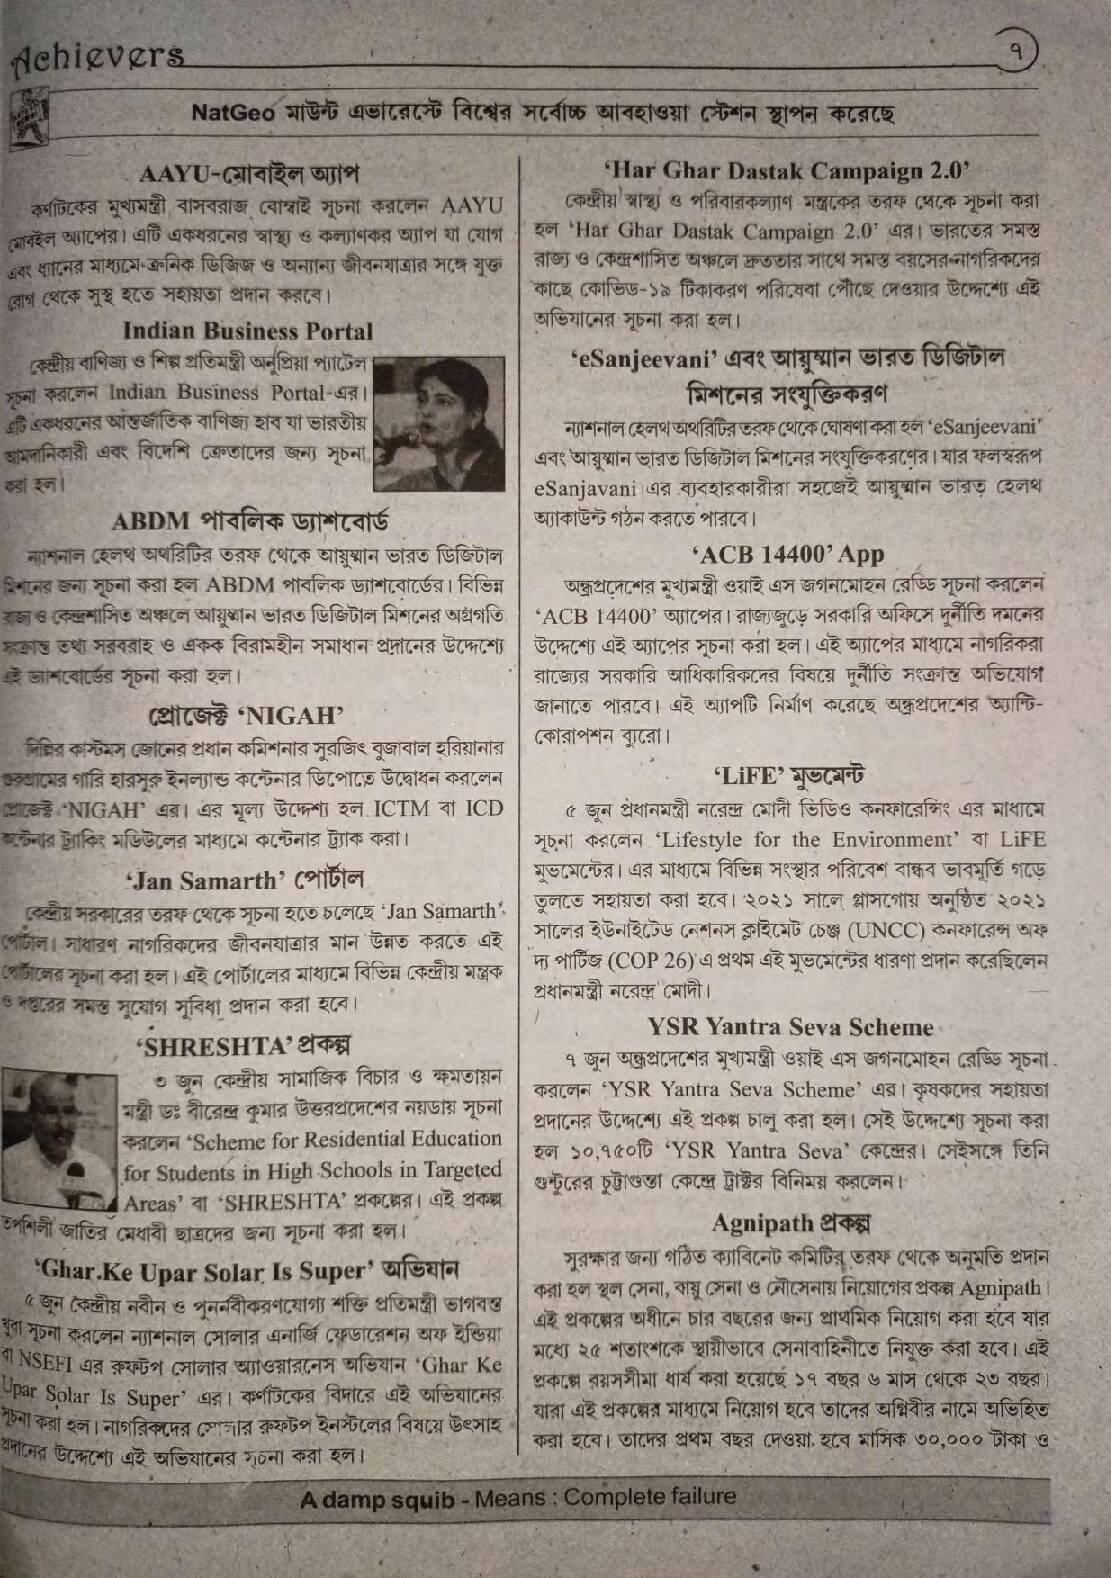 Achievers
৭
NatGeo মাউন্ট এভারেস্টে বিশ্বের সর্বোচ্চ আবহাওয়া স্টেশন স্থাপন করেছে
AAYU-মোবাইল অ্যাপ
কর্ণাটকের মুখ্যমন্ত্রী বাসবরাজ বোম্বাই সূচনা করলেন AAYU
মোবাইল অ্যাপের। এটি একধরনের স্বাস্থ্য ও কল্যাণকর অ্যাপ যা যোগ
এবং ধ্যানের মাধ্যমে ক্রনিক ডিজিজ ও অন্যান্য জীবনযাত্রার সঙ্গে যুক্ত
রোগ থেকে সুস্থ হতে সহায়তা প্রদান করবে।
Indian Business Portal
কেন্দ্রীয় বাণিজ্য ও শিল্প প্রতিমন্ত্রী অনুপ্রিয়া প্যাটেল
সূচনা করলেন Indian Business Portal-এর।
এটি একধরনের আন্তর্জাতিক বাণিজ্য হাব যা ভারতীয়
আমদানিকারী এবং বিদেশি ক্রেতাদের জন্য সূচনা
করা হল।
ABDM পাবলিক ড্যাশবোর্ড
ন্যাশনাল হেলথ অথরিটির তরফ থেকে আয়ুষ্মান ভারত ডিজিটাল
মিশনের জন্য সূচনা করা হল ABDM পাবলিক ড্যাশবোর্ডের। বিভিন্ন
রাজ্য ও কেন্দ্রশাসিত অঞ্চলে আয়ুষ্মান ভারত ডিজিটাল মিশনের অগ্রগতি
সংক্রান্ত তথ্য সরবরাহ ও একক বিরামহীন সমাধান প্রদানের উদ্দেশ্যে
এই ড্যাশবোর্ডের সূচনা করা হল।
প্রোজেক্ট ‘NIGAH’
দিল্লির কাস্টমস জোনের প্রধান কমিশনার সুরজিৎ বুজাবাল হরিয়ানার
গুরুগ্রামের গারি হারসুরু ইনল্যান্ড কন্টেনার ডিপোতে উদ্বোধন করলেন
প্রোজেক্ট ‘NIGAH’ এর। এর মূল্য উদ্দেশ্য হল ICTM বা ICD
কন্টেনার ট্র্যাকিং মডিউলের মাধ্যমে কন্টেনার ট্র্যাক করা।
‘Jan Samarth’ পোর্টাল
কেন্দ্রীয় সরকারের তরফ থেকে সূচনা হতে চলেছে ‘Jan Samarth’
পোর্টাল। সাধারণ নাগরিকদের জীবনযাত্রার মান উন্নত করতে এই
পোর্টালের সূচনা করা হল। এই পোর্টালের মাধ্যমে বিভিন্ন কেন্দ্রীয় মন্ত্রক
ও দপ্তরের সমস্ত সুযোগ সুবিধা প্রদান করা হবে।
‘SHRESHTA’ প্রকল্প
৩ জুন কেন্দ্রীয় সামাজিক বিচার ও ক্ষমতায়ন
মন্ত্রী ডঃ বীরেন্দ্র কুমার উত্তরপ্রদেশের নয়ডায় সূচনা
করলেন ‘Scheme for Residential Education
for Students in High Schools in Targeted
Areas’ বা ‘SHRESHTA’ প্রকল্পের। এই প্রকল্প
তপশিলী জাতির মেধাবী ছাত্রদের জন্য সূচনা করা হল।
‘Ghar Ke Upar Solar Is Super’ অভিযান
৫ জুন কেন্দ্রীয় নবীন ও পুনর্নবীকরণযোগ্য শক্তি প্রতিমন্ত্রী ভাগবন্ত
খুবা সূচনা করলেন ন্যাশনাল সোলার এনার্জি ফেডারেশন অফ ইন্ডিয়া
বা NSEFI এর রুফটপ সোলার অ্যাওয়ারনেস অভিযান ‘Ghar Ke
Upar Solar Is Super’ এর। কর্ণাটকের বিদারে এই অভিযানের
সূচনা করা হল। নাগরিকদের সোলার রুফটপ ইনস্টলের বিষয়ে উৎসাহ
প্রদানের উদ্দেশ্যে এই অভিযানের সূচনা করা হল।
‘Har Ghar Dastak Campaign 2.0’
কেন্দ্রীয় স্বাস্থ্য ও পরিবারকল্যাণ মন্ত্রকের তরফ থেকে সূচনা করা
হল ‘Har Ghar Dastak Campaign 2.0’ এর। ভারতের সমস্ত
রাজ্য ও কেন্দ্রশাসিত অঞ্চলে দ্রুততার সাথে সমস্ত বয়সের নাগরিকদের
কাছে কোভিড-১৯ টিকাকরণ পরিষেবা পৌঁছে দেওয়ার উদ্দেশ্যে এই
অভিযানের সূচনা করা হল।
‘eSanjeevani’ এবং আয়ুষ্মান ভারত ডিজিটাল
মিশনের সংযুক্তিকরণ
ন্যাশনাল হেলথ অথরিটির তরফ থেকে ঘোষণা করা হল ‘eSanjeevani’
এবং আয়ুষ্মান ভারত ডিজিটাল মিশনের সংযুক্তিকরণের। যার ফলস্বরূপ
eSanjavani এর ব্যবহারকারীরা সহজেই আয়ুষ্মান ভারত হেলথ
অ্যাকাউন্ট গঠন করতে পারবে।
‘ACB 14400’ App
অন্ধ্রপ্রদেশের মুখ্যমন্ত্রী ওয়াই এস জগনমোহন রেড্ডি সূচনা করলেন
‘ACB 14400’ অ্যাপের। রাজ্যজুড়ে সরকারি অফিসে দুর্নীতি দমনের
উদ্দেশ্যে এই অ্যাপের সূচনা করা হল। এই অ্যাপের মাধ্যমে নাগরিকরা
রাজ্যের সরকারি আধিকারিকদের বিষয়ে দুর্নীতি সংক্রান্ত অভিযোগ
জানাতে পারবে। এই অ্যাপটি নির্মাণ করেছে অন্ধ্রপ্রদেশের অ্যান্টি-
কোরাপশন ব্যুরো।
‘LiFE’ মুভমেন্ট
৫ জুন প্রধানমন্ত্রী নরেন্দ্র মোদী ভিডিও কনফারেন্সিং এর মাধ্যমে
সূচনা করলেন ‘Lifestyle for the Environment’ বা LiFE
মুভমেন্টের। এর মাধ্যমে বিভিন্ন সংস্থার পরিবেশ বান্ধব ভাবমূর্তি গড়ে
তুলতে সহায়তা করা হবে। ২০২১ সালে গ্লাসগোয় অনুষ্ঠিত ২০২১
সালের ইউনাইটেড নেশনস ক্লাইমেট চেঞ্জ (UNCC) কনফারেন্স অফ
দ্য পার্টিজ (COP 26) এ প্রথম এই মুভমেন্টের ধারণা প্রদান করেছিলেন
প্রধানমন্ত্রী নরেন্দ্র মোদী।
YSR Yantra Seva Scheme
৭ জুন অন্ধ্রপ্রদেশের মুখ্যমন্ত্রী ওয়াই এস জগনমোহন রেড্ডি সূচনা
করলেন ‘YSR Yantra Seva Scheme’ এর। কৃষকদের সহায়তা
প্রদানের উদ্দেশ্যে এই প্রকল্প চালু করা হল। সেই উদ্দেশ্যে সূচনা করা
হল ১০,৭৫০টি ‘YSR Yantra Seva’ কেন্দ্রের। সেইসঙ্গে তিনি
গুন্টুরের চুট্টাগুন্তা কেন্দ্রে ট্রাক্টর বিনিময় করলেন।
Agnipath প্রকল্প
সুরক্ষার জন্য গঠিত ক্যাবিনেট কমিটির তরফ থেকে অনুমতি প্রদান
করা হল স্থল সেনা, বায়ু সেনা ও নৌসেনায় নিয়োগের প্রকল্প Agnipath।
এই প্রকল্পের অধীনে চার বছরের জন্য প্রাথমিক নিয়োগ করা হবে যার
মধ্যে ২৫ শতাংশকে স্থায়ীভাবে সেনাবাহিনীতে নিযুক্ত করা হবে। এই
প্রকল্পে বয়সসীমা ধার্য করা হয়েছে ১৭ বছর ৬ মাস থেকে ২৩ বছর।
যারা এই প্রকল্পের মাধ্যমে নিয়োগ হবে তাদের অগ্নিবীর নামে অভিহিত
করা হবে। তাদের প্রথম বছর দেওয়া হবে মাসিক ৩০,০০০ টাকা ও
A damp squib - Means : Complete failure